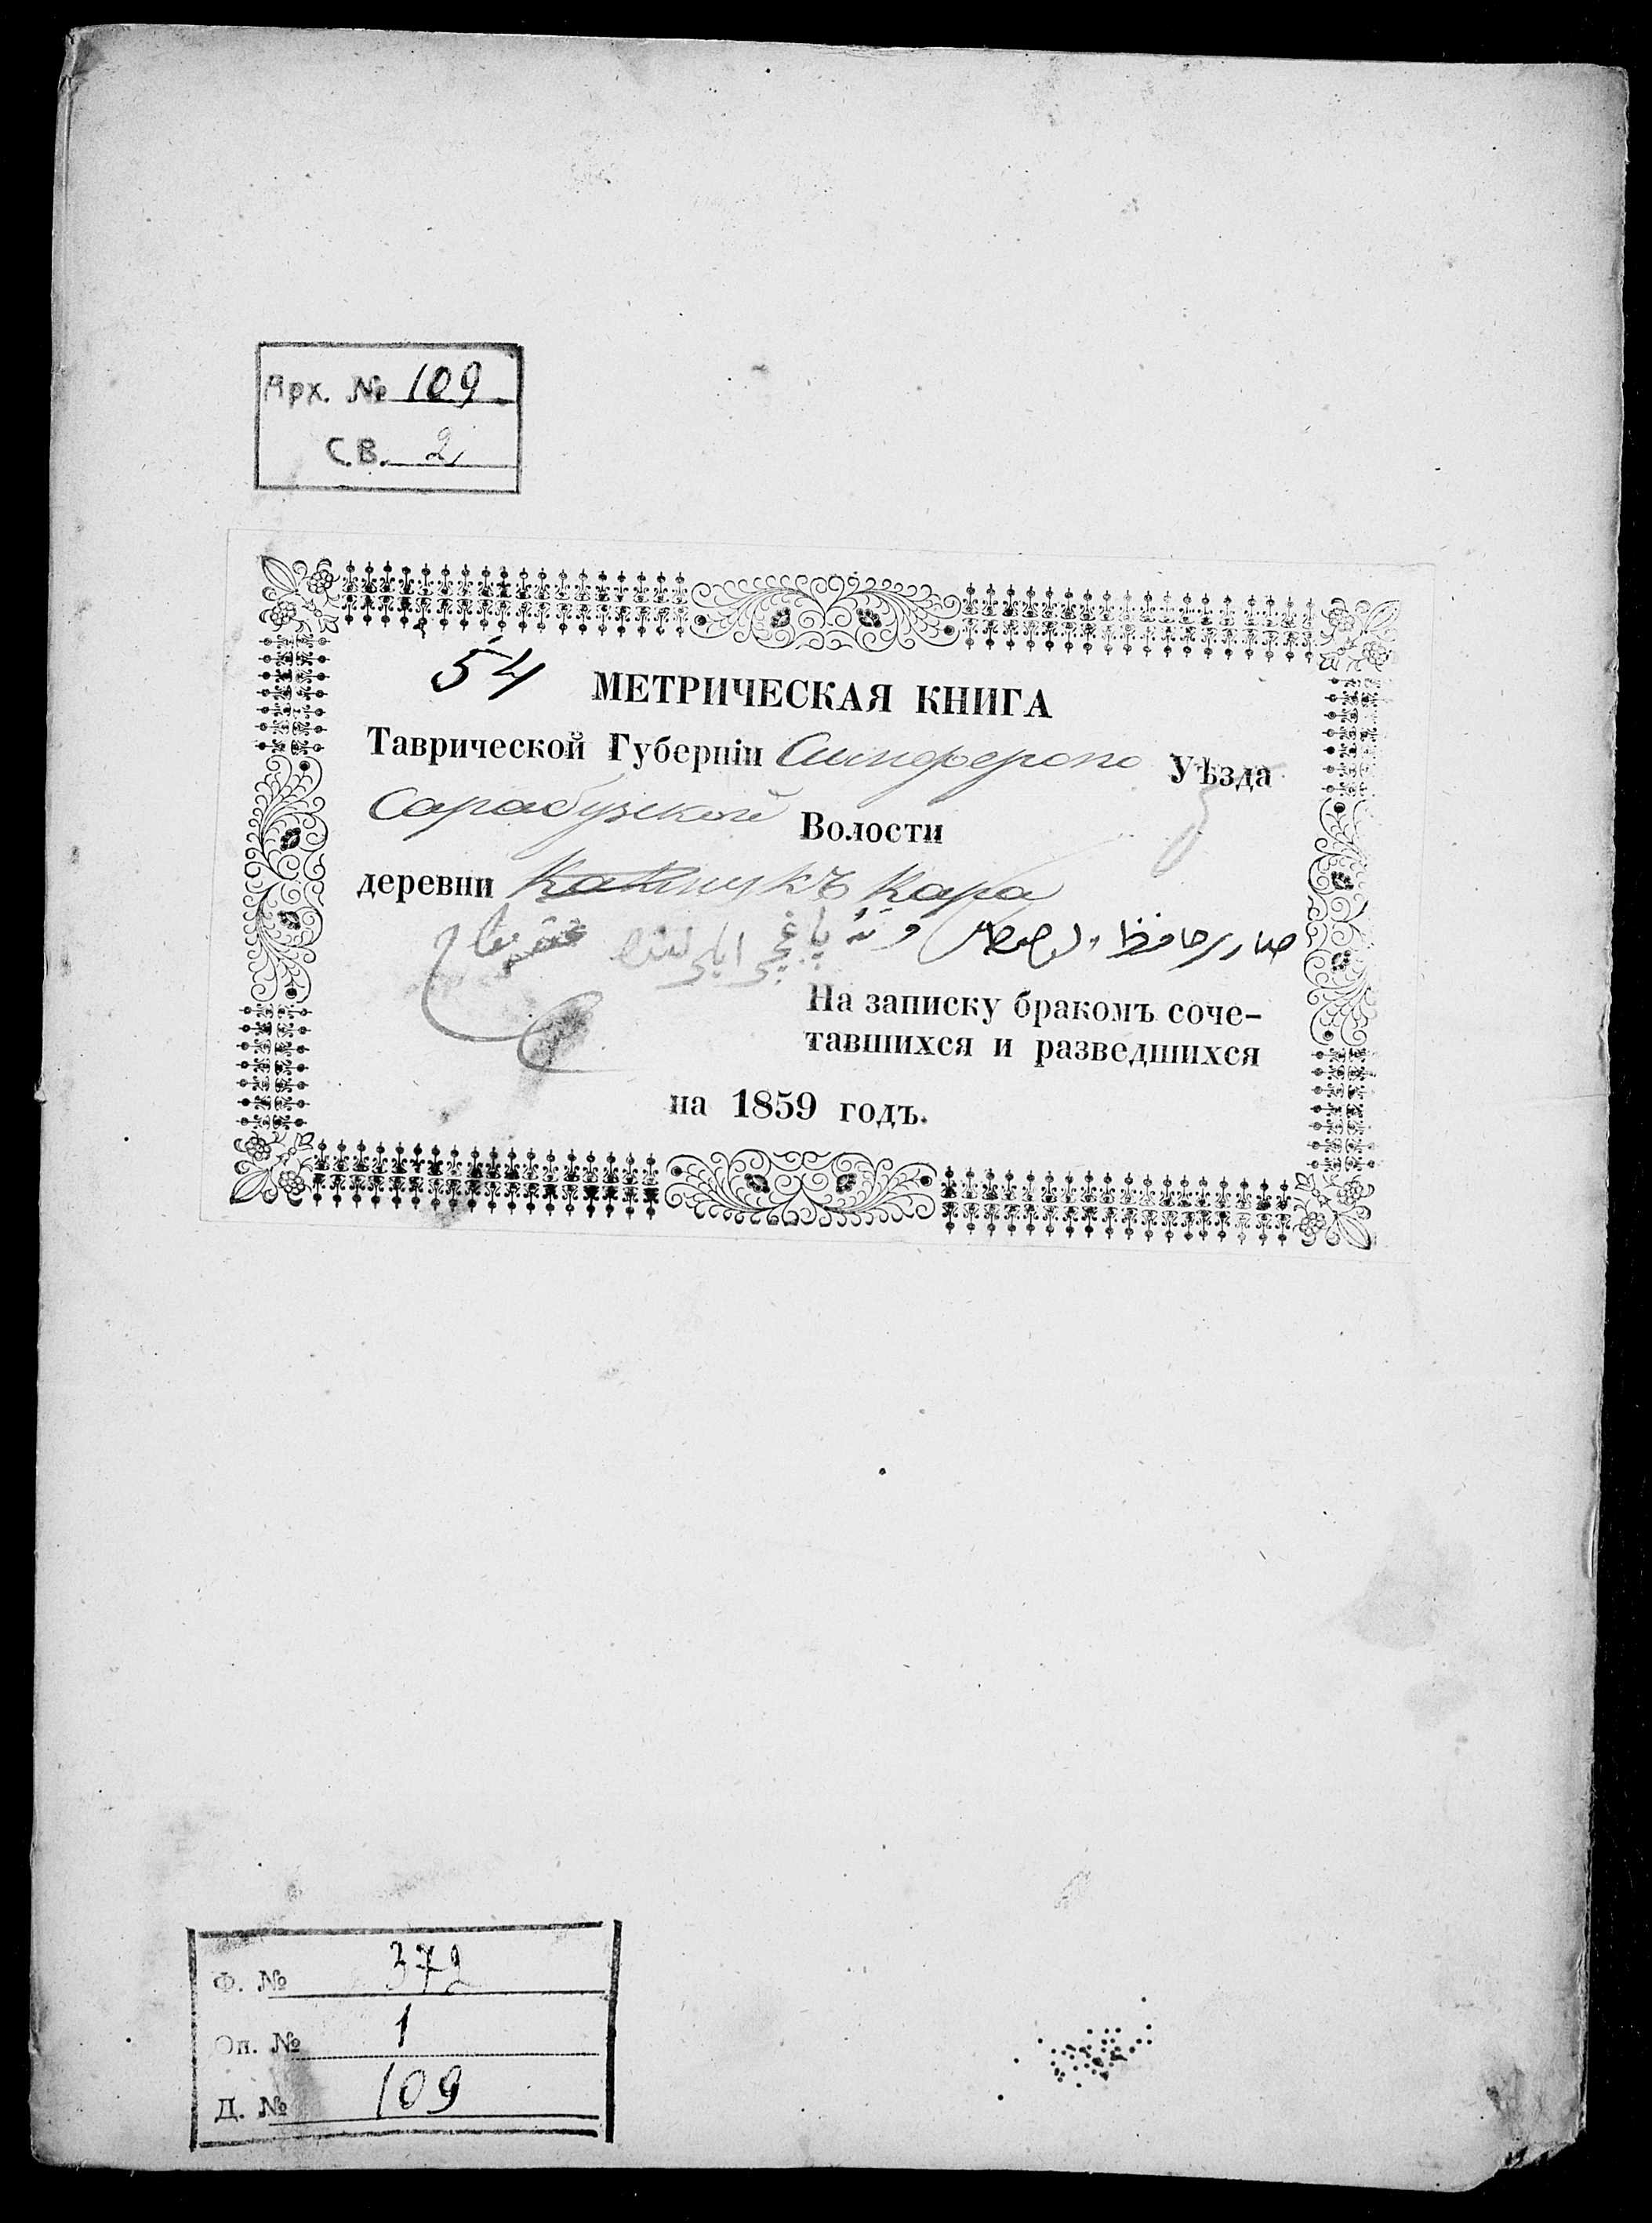 Арх. № 109
С.В. 2
54 МЕТРИЧЕСКАЯ КНИГА
Таврической Губерніи Симферопо Уѣзда
Сарабузской Волости
деревни Кара
На записку бракомъ соче-
тавшихся и разведшихся
на 1859 годъ.
Ф. № 372
Оп. № 1
Д. № 109